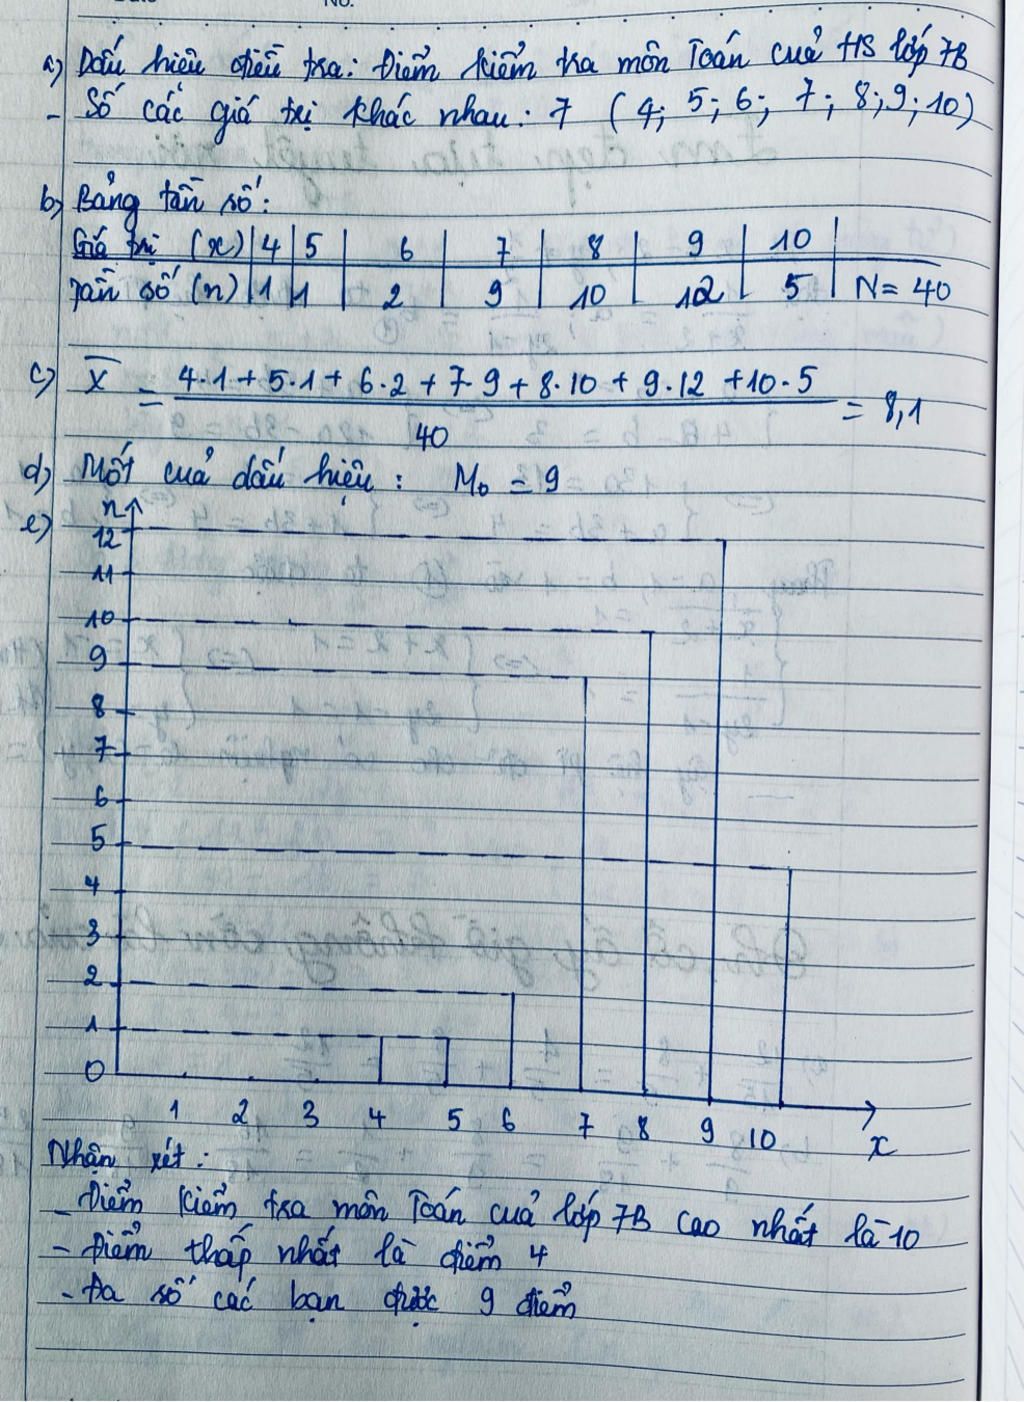 a) Dấu hiệu điều tra: Điểm kiểm tra môn Toán của HS lớp 7B
- Số các giá trị khác nhau: 7 (4; 5; 6; 7; 8; 9; 10)
b) Bảng tần số:
Giá trị (x) 4 5 6 7 8 9 10
Tần số (n) 1 1 2 9 10 12 5 N = 40
c) X̅ = (4·1 + 5·1 + 6·2 + 7·9 + 8·10 + 9·12 + 10·5) / 40 = 8,1
d) Mốt của dấu hiệu: M₀ = 9
e) n
12
11
10
9
8
7
6
5
4
3
2
1
0
1 2 3 4 5 6 7 8 9 10 x
Nhận xét:
- Điểm kiểm tra môn Toán của lớp 7B cao nhất là 10
- Điểm thấp nhất là điểm 4
- Đa số các bạn được 9 điểm